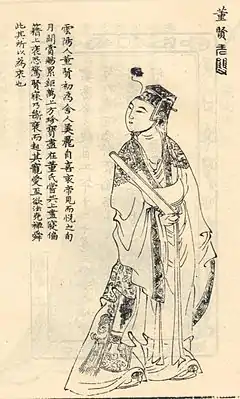 董賢
雲陽人董賢初為舍人美麗自喜哀帝見而悅之旬
月間賞賜累距萬上方珍寶盡在董氏嘗共上晝寢偏
藉上褏恐驚賢寐乃斷褏而起其寵愛至欲法堯禪舜
此其所以為哀也